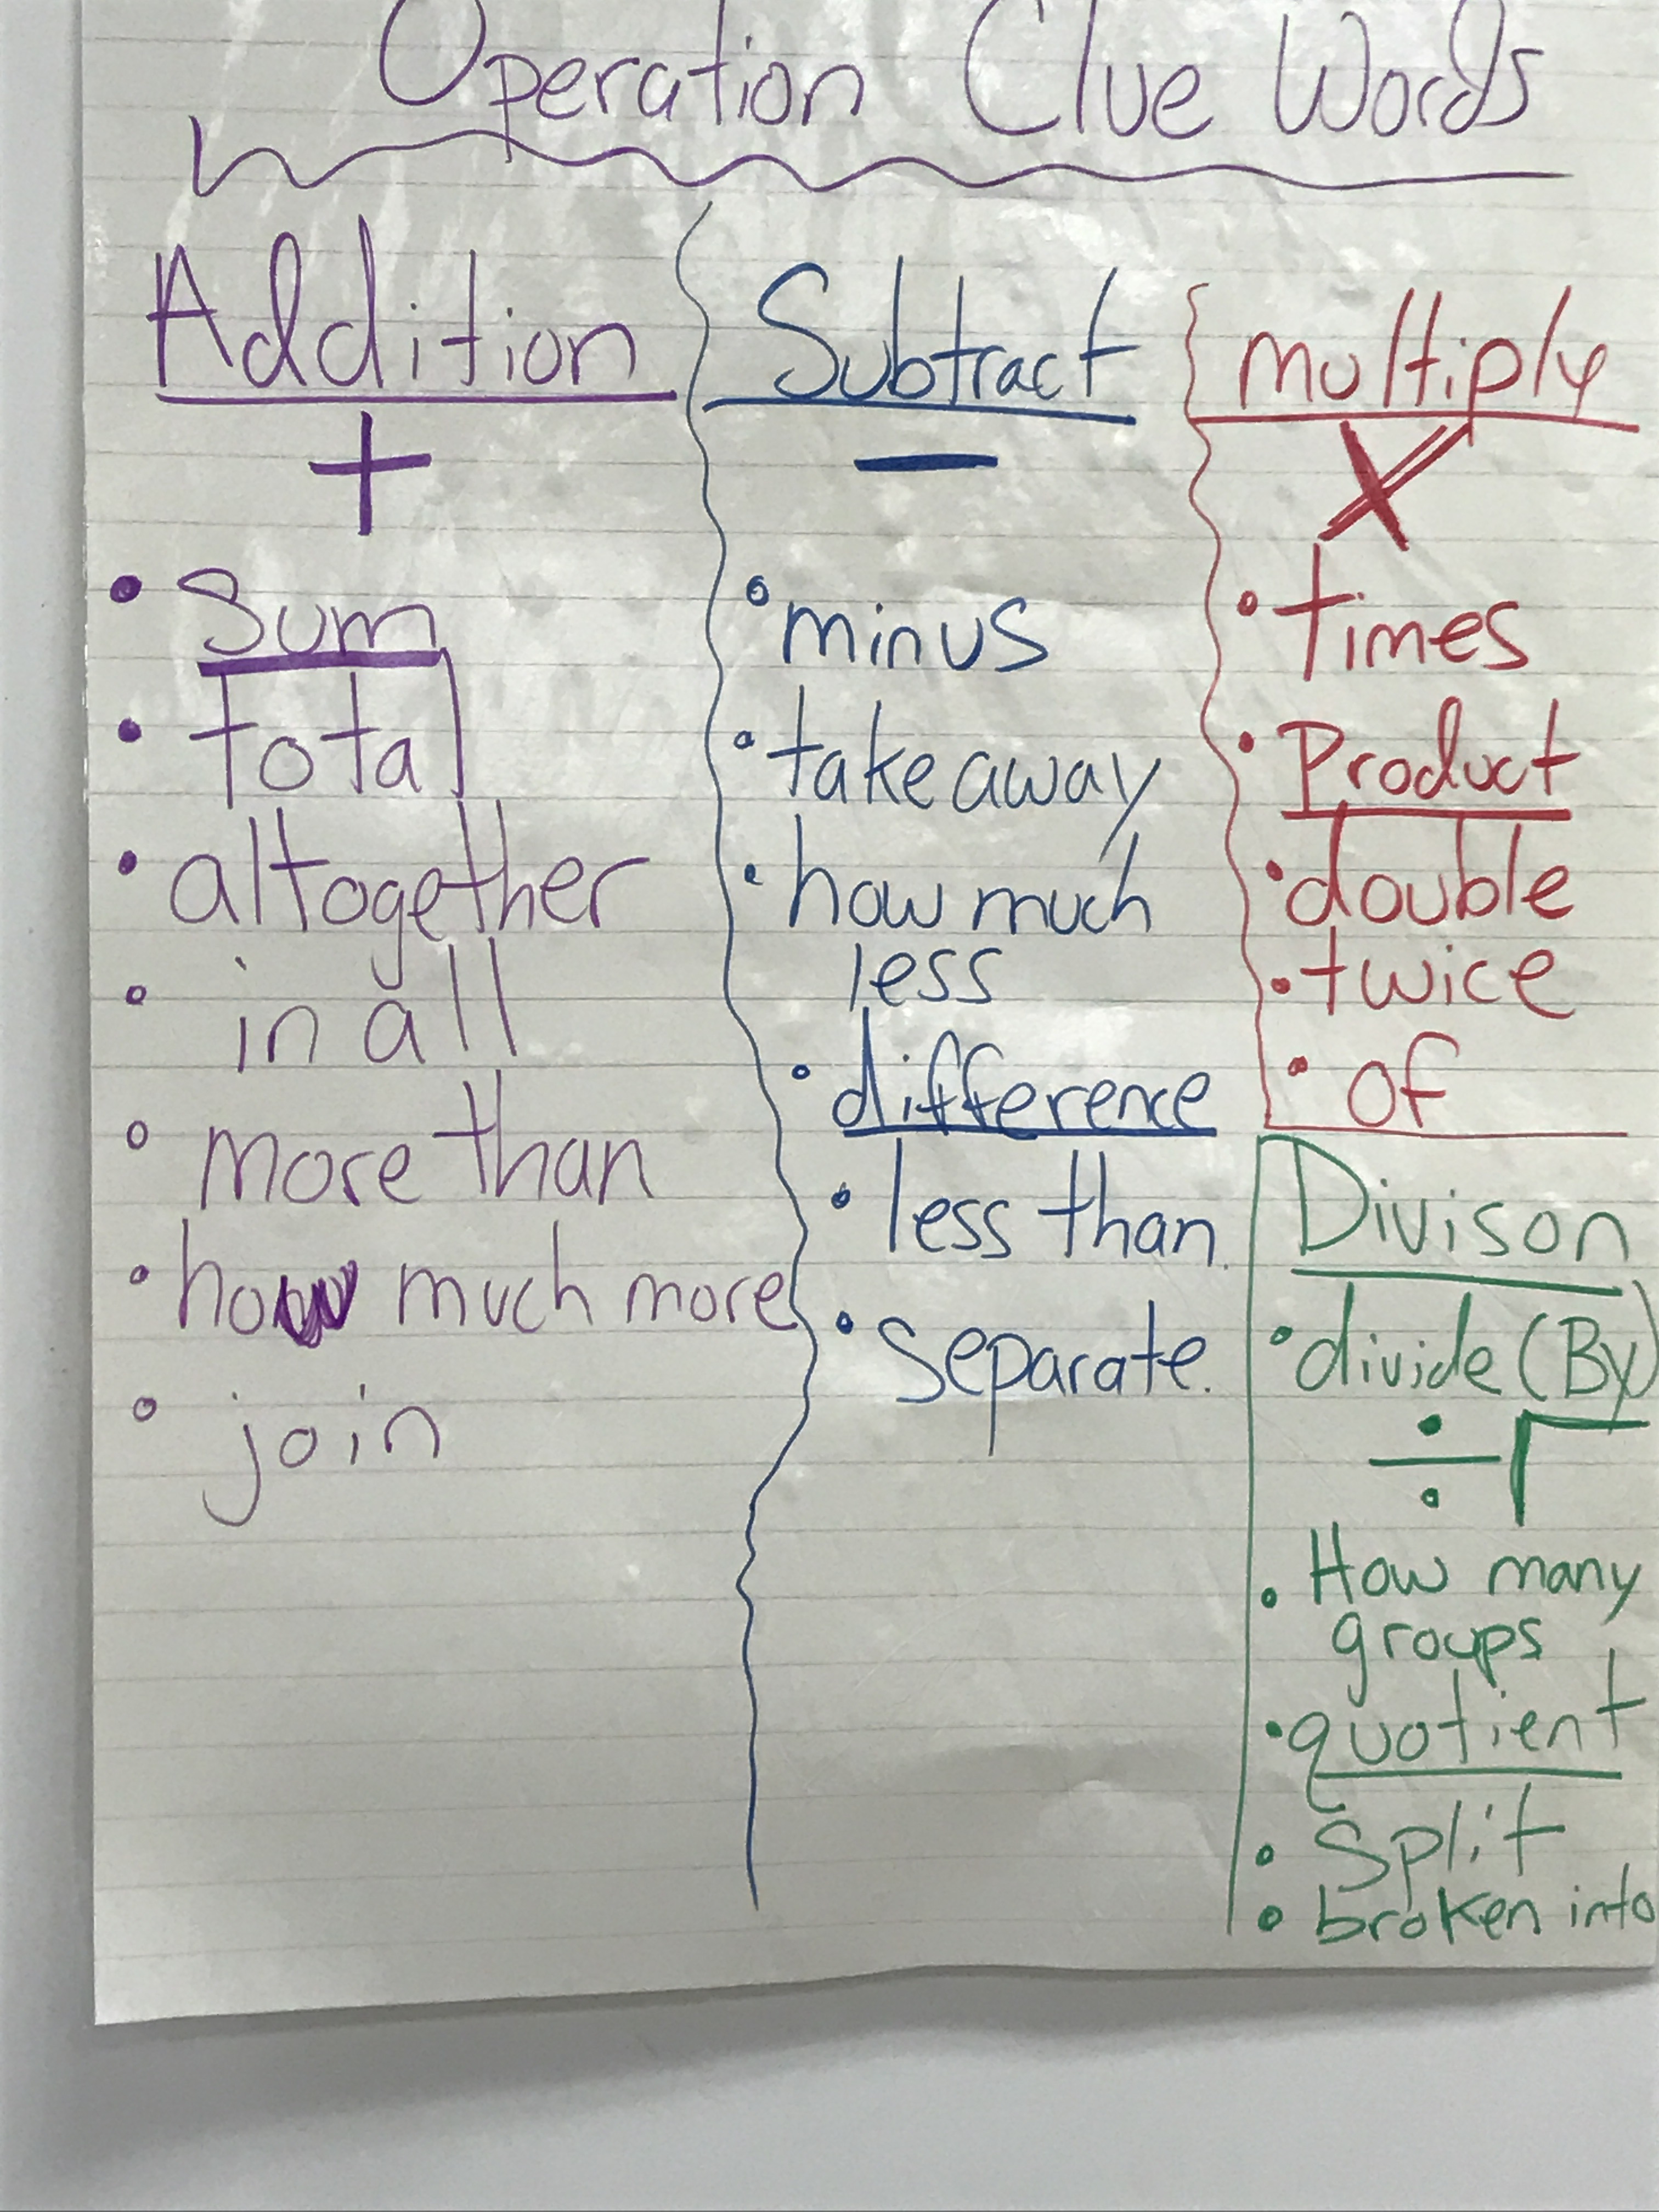 Operation Clue Words
Addition
+
• Sum
• total
• altogether
• in all
• more than
• how much more
• join
Subtract
−
• minus
• take away
• how much
less
• difference
• less than
• separate.
multiply
X
• times
• Product
• double
• twice
• of
Divison
• divide (By)
÷
• How many
groups
• quotient
• Split
• broken into